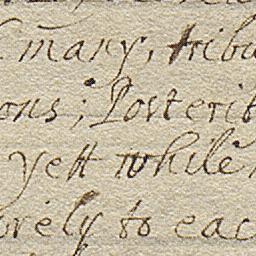 many, tribu
ons; Posterit
yett while
to eac